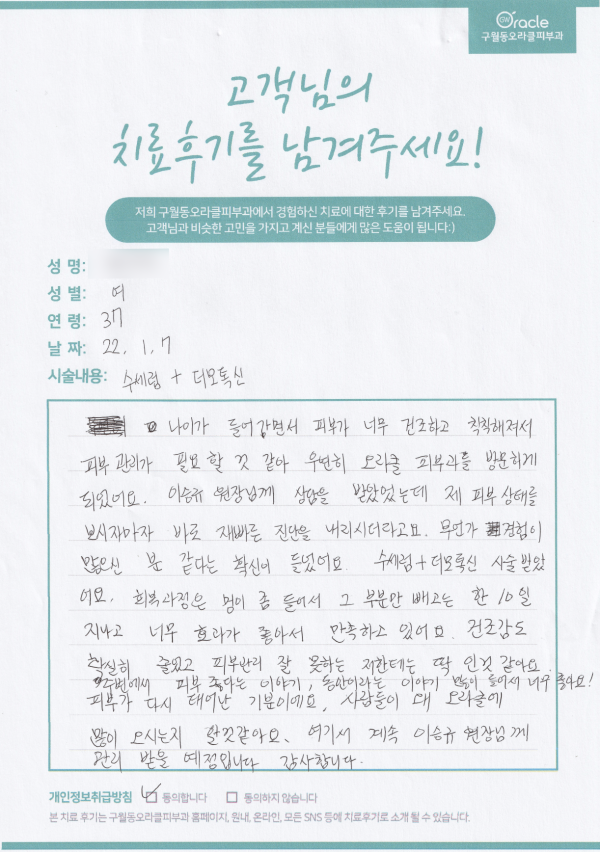 GW Oracle
구월동오라클피부과
고객님의
치료후기를 남겨주세요!
저희 구월동오라클피부과에서 경험하신 치료에 대한 후기를 남겨주세요.
고객님과 비슷한 고민을 가지고 계신 분들에게 많은 도움이 됩니다:)
성 명:
성 별: 여
연 령: 37
날 짜: 22. 1. 7
시술내용: 수세럼 + 더모톡신
나이가 들어가면서 피부가 너무 건조하고 칙칙해져서
피부 관리가 필요 할 것 같아 우연히 오라클 피부과를 방문하게
되었어요. 이승규 원장님께 상담을 받았었는데 제 피부 상태를
보시자마자 바로 재빠른 진단을 내리시더라고요. 무언가 경험이
많으신 분 같다는 확신이 들었어요. 수세럼+더모톡신 시술 받았
어요. 회복과정은 멍이 좀 들어서 그 부분만 빼고는 한 10일
지나고 너무 효과가 좋아서 만족하고 있어요. 건조감도
확실히 줄었고 피부관리 잘 못하는 저한테는 딱 인것 같아요.
주변에서 피부 좋다는 이야기, 동안이라는 이야기 많이 들어서 너무 좋아요!
피부가 다시 태어난 기분이에요, 사람들이 왜 오라클에
많이 오시는지 알것같아요. 여기서 계속 이승규 원장님께
관리 받을 예정입니다 감사합니다.
개인정보취급방침 동의합니다 동의하지 않습니다
본 치료 후기는 구월동오라클피부과 홈페이지, 원내, 온라인, 모든 SNS 등에 치료후기로 소개 될 수 있습니다.